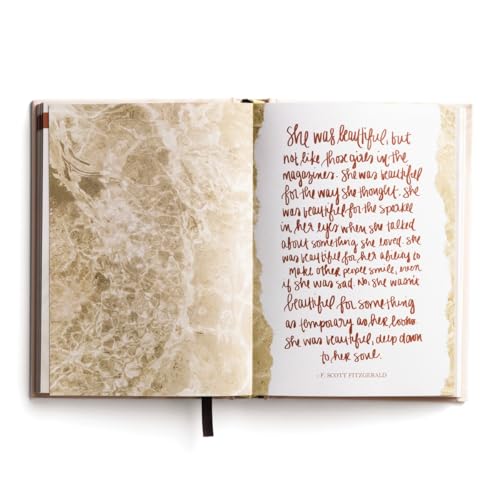 She was beautiful, but
not like those girls in the
magazines. She was beautiful
for the way she thought. She
was beautiful for the sparkle
in her eyes when she talked
about something she loved. She
was beautiful for her ability to
make other people smile, even
if she was sad. No, she wasn't
beautiful for something
as temporary as her looks.
She was beautiful, deep down
to her soul.
-F. SCOTT FITZGERALD